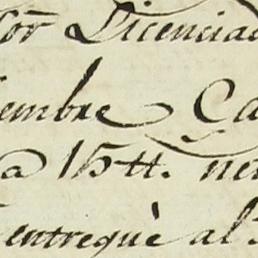 or Licencia
iembre Ca
a 15 tt. ne
entregué al